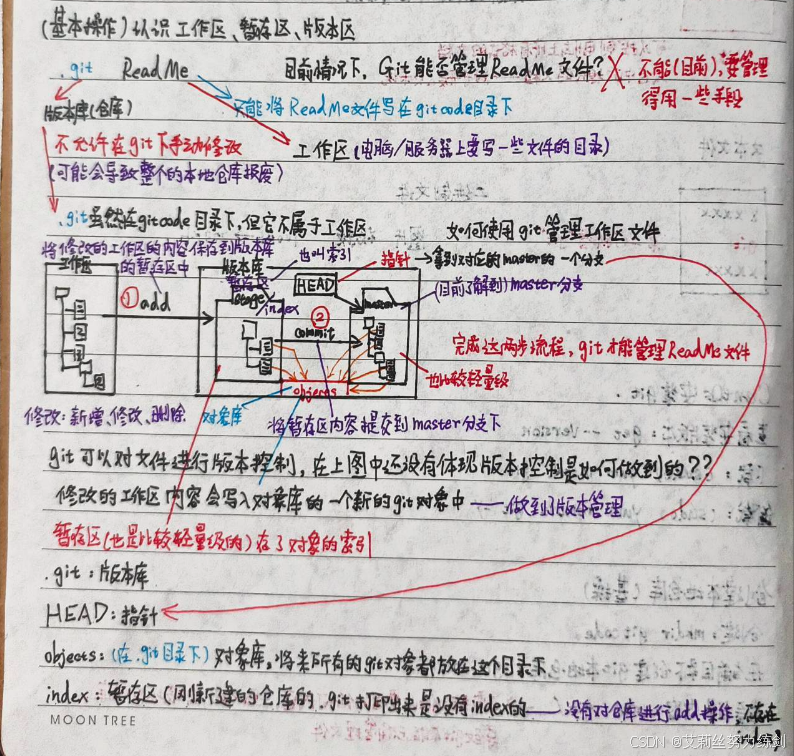 (基本操作)认识工作区、暂存区、版本区
.git ReadMe 目前情况下,Git能否管理ReadMe文件? 不能(目前),要管理
得用一些手段
版本库(仓库) 不能将ReadMe文件写在gitcode目录下
不允许在git下手动修改 工作区(电脑/服务器上要写一些文件的目录)
(可能会导致整个的本地仓库报废)
.git虽然在gitcode目录下,但它不属于工作区 如何使用git管理工作区文件
将修改的工作区的内容保存到版本库
的暂存区中
也叫索引
指针 → 拿到对应的master的一个分支
工作区 版本库
暂存区
stage/index
HEAD
master
(目前了解到)master分支
① add
② commit
完成这两步流程,git才能管理ReadMe文件
也比较轻量级
objects
修改:新增、修改、删除 对象库
将暂存区内容提交到master分支下
git可以对文件进行版本控制,在上图中还没有体现版本控制是如何做到的??
修改的工作区内容会写入对象库的一个新的git对象中——做到了版本管理
暂存区(也是比较轻量级的)存了对象的索引
.git:版本库
HEAD:指针
objects:(在.git目录下)对象库,将来所有的git对象都放在这个目录下
index:暂存区(刚新建的仓库的.git打印出来是没有index的——没有对仓库进行add操作,不存在
MOON TREE
CSDN @艾莉丝努力练剑